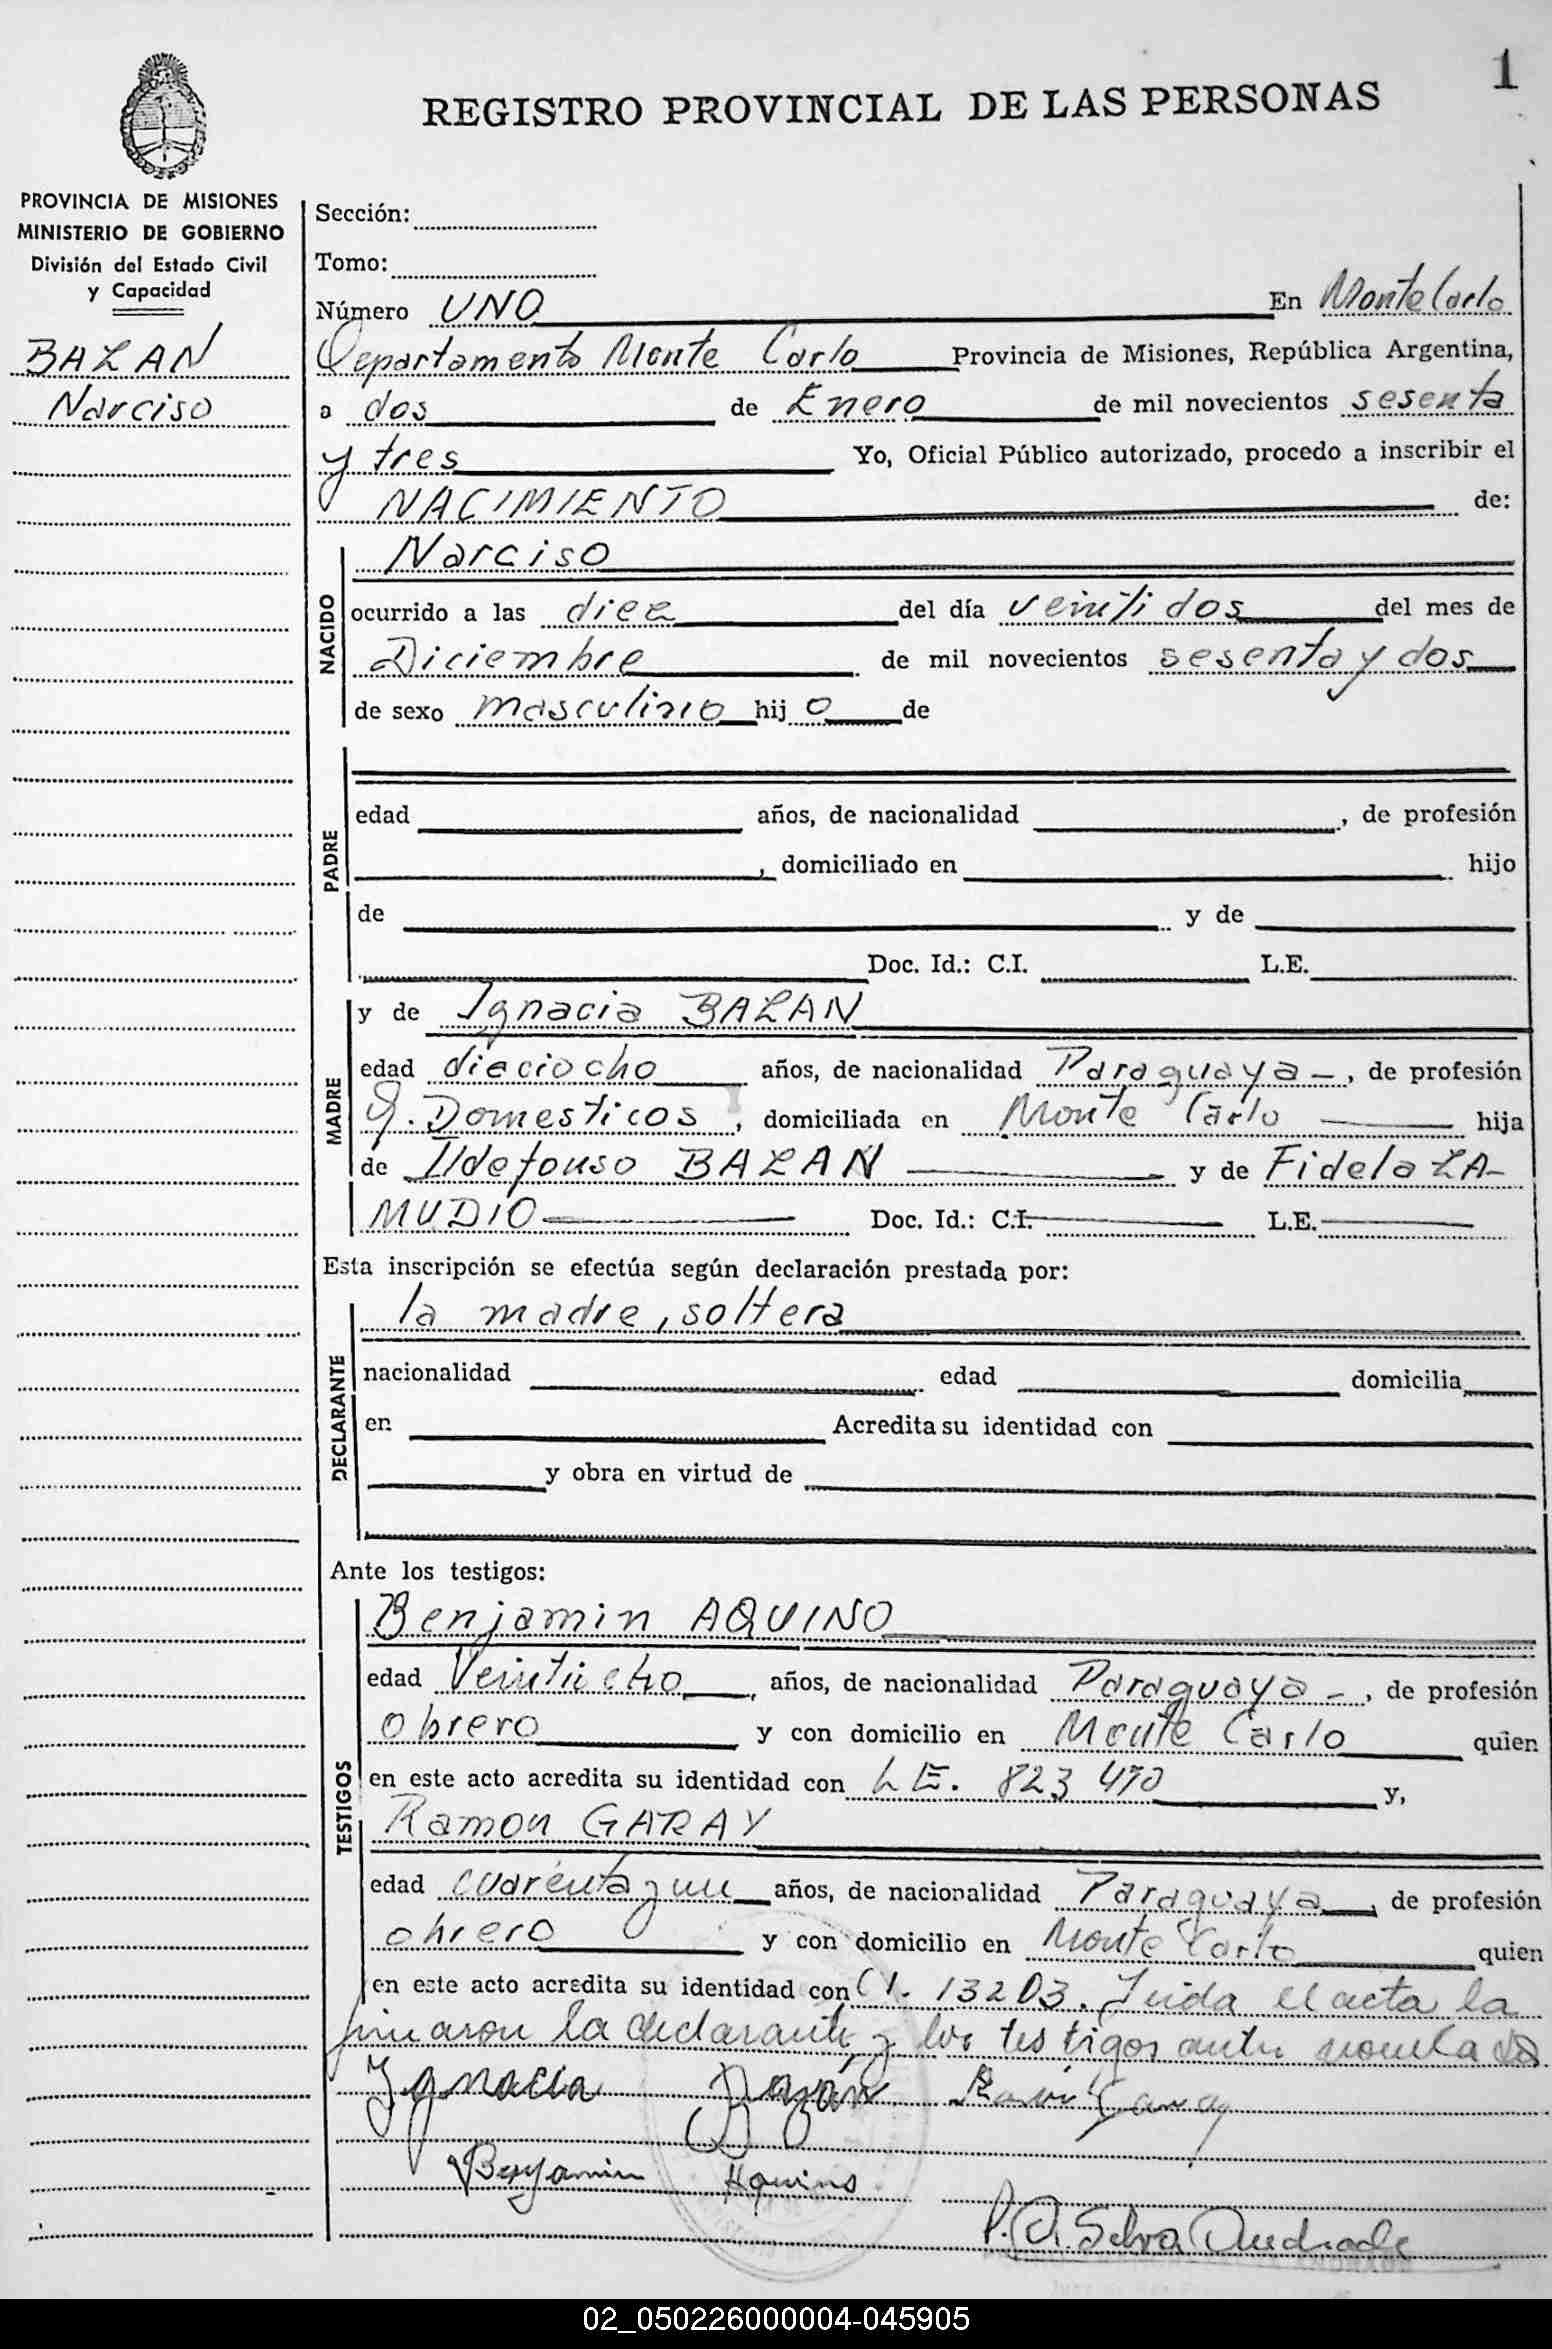 1
REGISTRO PROVINCIAL DE LAS PERSONAS
PROVINCIA DE MISIONES
MINISTERIO DE GOBIERNO
División del Estado Civil
y Capacidad
BAZAN
Narciso
Sección:
Tomo:
Número UNO En Monte Carlo
Departamento Monte Carlo Provincia de Misiones, República Argentina,
a dos de Enero de mil novecientos sesenta
y tres Yo, Oficial Público autorizado, procedo a inscribir el
NACIMIENTO de:
NACIDO
Narciso
ocurrido a las diez del día veintidos del mes de
Diciembre de mil novecientos sesenta y dos
de sexo masculino hij o de
PADRE
edad años, de nacionalidad , de profesión
, domiciliado en hijo
de y de
Doc. Id.: C.I. L.E.
MADRE
y de Ignacia BAZAN
edad dieciocho años, de nacionalidad Paraguaya, de profesión
Q. Domesticos, domiciliada en Monte Carlo hija
de Ildefonso BAZAN y de Fidela ZA-
MUDIO Doc. Id.: C.I. L.E.
Esta inscripción se efectúa según declaración prestada por:
DECLARANTE
la madre, soltera
nacionalidad edad domicilia
en Acredita su identidad con
y obra en virtud de
Ante los testigos:
TESTIGOS
Benjamin AQUINO
edad Veintiocho, años, de nacionalidad Paraguaya -, de profesión
obrero y con domicilio en Monte Carlo quien
en este acto acredita su identidad con L.E. 823470 y,
Ramon GARAY
edad cuarenta y un años, de nacionalidad Paraguaya, de profesión
obrero y con domicilio en Monte Carlo quien
en este acto acredita su identidad con C.I. 13203. Leida el acta la
firmaron la declarante y los testigos ante
Ygnacia Bazán Ramón Garay
Benjamin Aquino
P. A. Silva Andrade
02_050226000004-045905